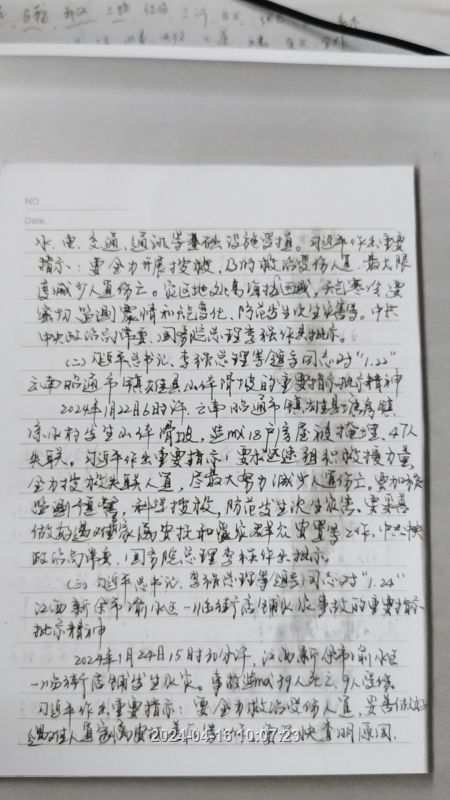 NO.
Date.
水、电、交通、通讯等基础设施受损。习近平作出重要
指示:要全力开展搜救,及时救治受伤人员,最大限
度减少人员伤亡。灾区地处高海拔区域,天气寒冷,要
密切监测震情和天气变化,防范发生次生灾害等。中共
中央政治局常委、国务院总理李强作出批示。
(二)习近平总书记、李强总理等领导同志对“1.22”
云南昭通市镇雄县山体滑坡的重要指示批示精神
2024年1月22日6时许,云南昭通市镇雄县塘房镇
凉水村发生山体滑坡,造成18户房屋被掩埋,47人
失联。习近平作出重要指示:要求迅速组织救援力量,
全力搜救失联人员,尽最大努力减少人员伤亡,要加强
监测预警,科学搜救,防范发生次生灾害。要妥善
做好遇难家属安抚和受灾群众安置等工作。中共中央
政治局常委、国务院总理李强作出批示。
(三)习近平总书记、李强总理等领导同志对“1.24”
江西新余市渝水区一临街店铺火灾事故的重要指示
批示精神
2024年1月24日15时许,江西新余市渝水区
一临街店铺发生火灾。事故造成39人死亡,9人受伤。
习近平作出重要指示:要全力救治受伤人员,妥善做好
遇难人员家属安抚等工作,要尽快查明原因,
2024-04-16 10:07:23